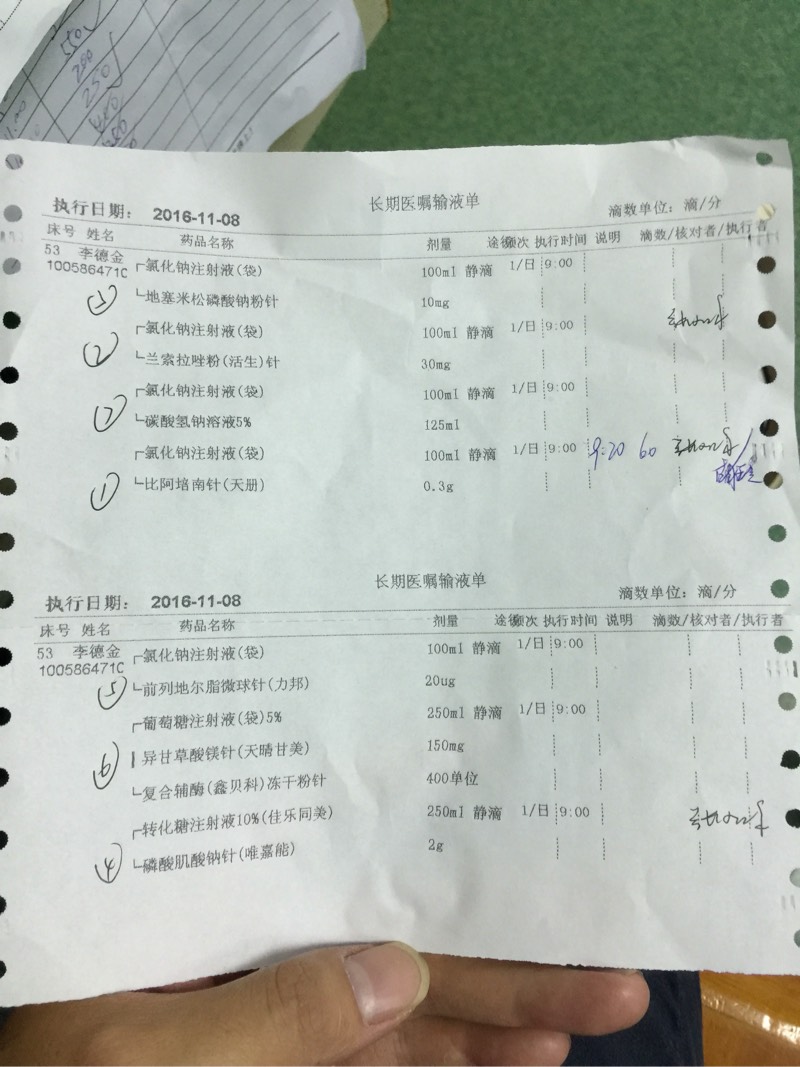 550
200
250
长期医嘱输液单
执行日期： 2016-11-08 滴数单位：滴/分
床号 姓名 药品名称 剂量 途径 频次 执行时间 说明 滴数/核对者/执行者
53 李德金 ┌氯化钠注射液(袋) 100ml 静滴 1/日 9:00
100586471C
③ └地塞米松磷酸钠粉针 10mg
┌氯化钠注射液(袋) 100ml 静滴 1/日 9:00
② └兰索拉唑粉(活生)针 30mg
┌氯化钠注射液(袋) 100ml 静滴 1/日 9:00
⑦ └碳酸氢钠溶液5% 125ml
┌氯化钠注射液(袋) 100ml 静滴 1/日 9:00 9:20 60
① └比阿培南针(天册) 0.3g
长期医嘱输液单
执行日期： 2016-11-08 滴数单位：滴/分
床号 姓名 药品名称 剂量 途径 频次 执行时间 说明 滴数/核对者/执行者
53 李德金 ┌氯化钠注射液(袋) 100ml 静滴 1/日 9:00
100586471C
⑤ └前列地尔脂微球针(力邦) 20ug
┌葡萄糖注射液(袋)5% 250ml 静滴 1/日 9:00
⑥ 异甘草酸镁针(天晴甘美) 150mg
└复合辅酶(鑫贝科)冻干粉针 400单位
┌转化糖注射液10%(佳乐同美) 250ml 静滴 1/日 9:00
④ └磷酸肌酸钠针(唯嘉能) 2g